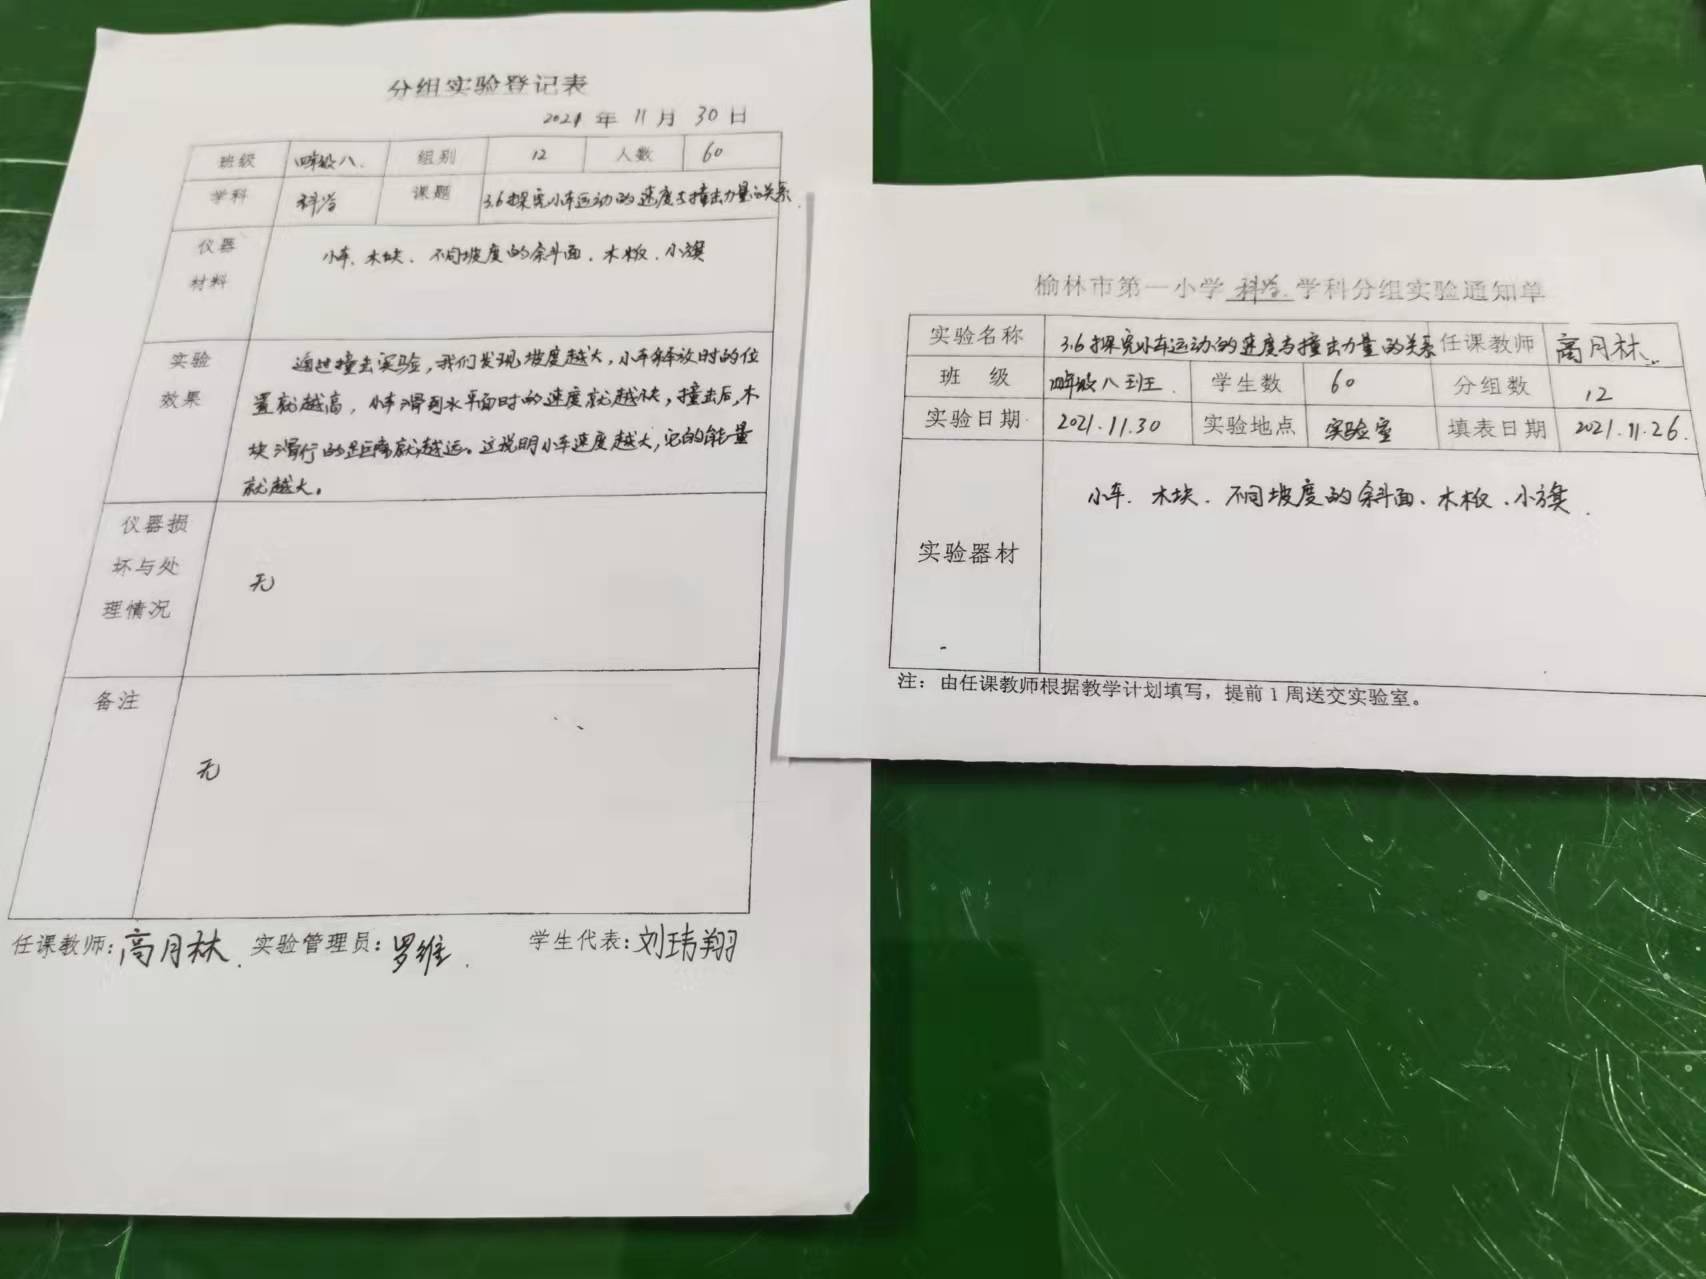 分组实验登记表
2021 年 11 月 30 日
班级 四年级八. 组别 12 人数 60
学科 科学 课题 3.6探究小车运动的速度与撞击力量的关系.
仪器 小车、木块、不同坡度的斜面、木板、小旗
材料
实验 通过撞击实验,我们发现坡度越大,小车释放时的位
效果 置就越高,小车滑到水平面时的速度就越快,撞击后,木
块滑行的距离就越远。这说明小车速度越大,它的能量
就越大。
仪器损
坏与处 无
理情况
备注
无
任课教师:高月林. 实验管理员:罗维. 学生代表:刘玮翔
榆林市第一小学 科学 学科分组实验通知单
实验名称 3.6探究小车运动的速度与撞击力量的关系 任课教师 高月林.
班 级 四年级八班. 学生数 60 分组数 12
实验日期 2021.11.30 实验地点 实验室 填表日期 2021.11.26.
小车、木块、不同坡度的斜面、木板、小旗.
实验器材
注:由任课教师根据教学计划填写,提前1周送交实验室。